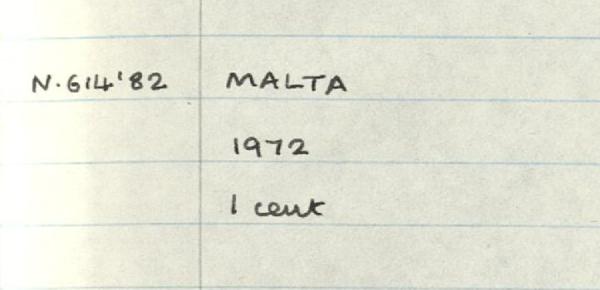 N.614'82 MALTA
1972
1 cent